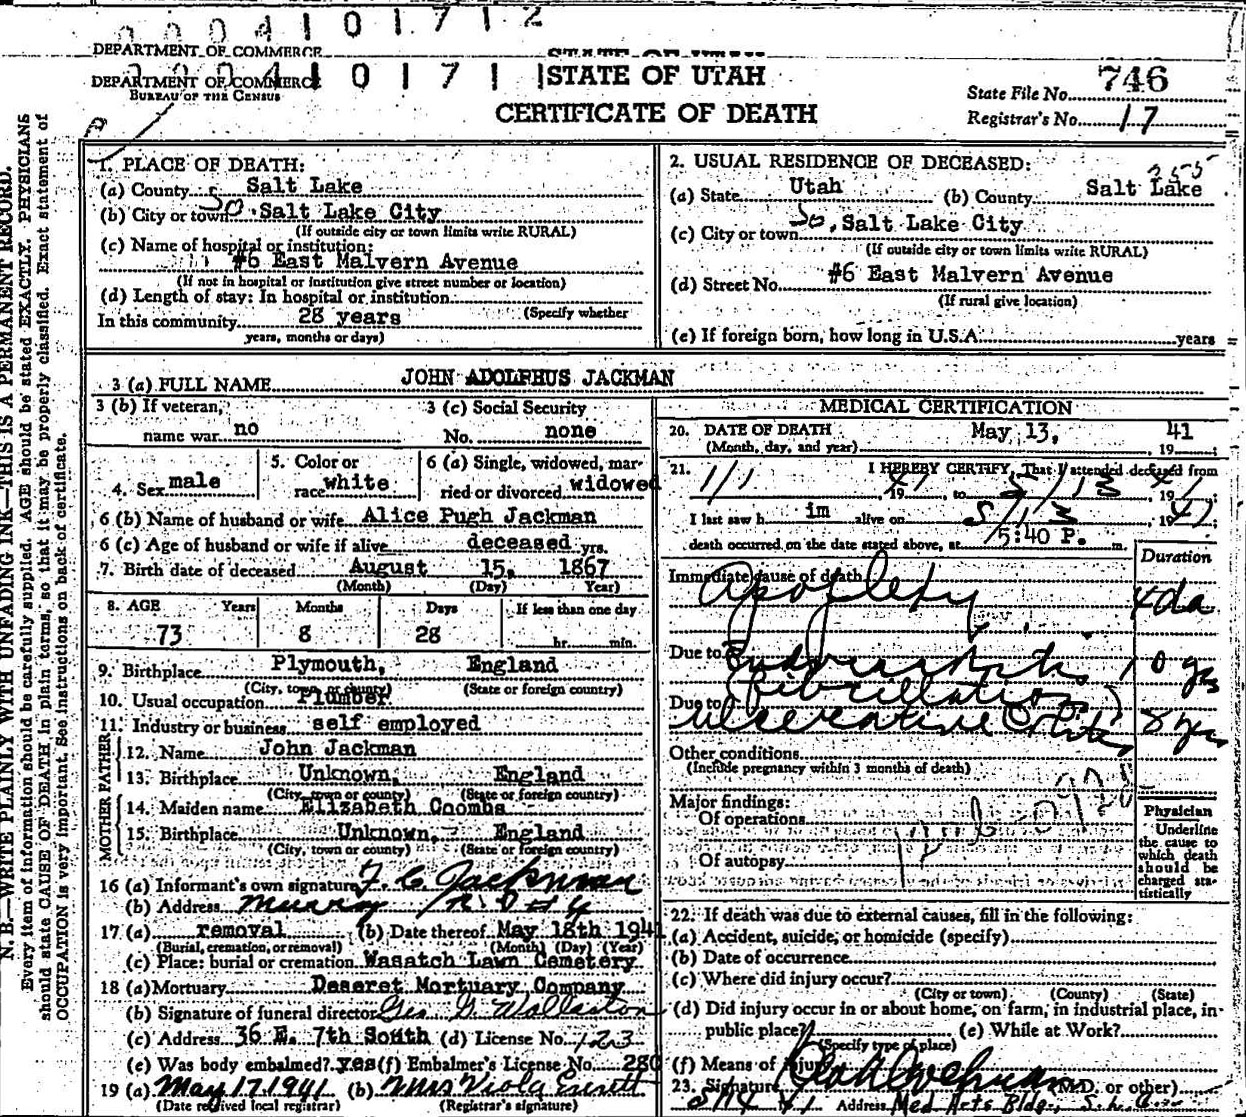 0004101712
DEPARTMENT OF COMMERCE
STATE OF UTAH
DEPARTMENT OF COMMERCE
BUREAU OF THE CENSUS
0004101711
STATE OF UTAH
CERTIFICATE OF DEATH
State File No. 746
Registrar's No. 17
N. B.—WRITE PLAINLY WITH UNFADING INK—THIS IS A PERMANENT RECORD.
Every item of information should be carefully supplied. AGE should be stated EXACTLY. PHYSICIANS
should state CAUSE OF DEATH in plain terms, so that it may be properly classified. Exact statement of
OCCUPATION is very important. See instructions on back of certificate.
1. PLACE OF DEATH:
(a) County Salt Lake
(b) City or town So. Salt Lake City
(If outside city or town limits write RURAL)
(c) Name of hospital or institution:
#6 East Malvern Avenue
(If not in hospital or institution give street number or location)
(d) Length of stay: In hospital or institution
(Specify whether
In this community 28 years
years, months or days)
2. USUAL RESIDENCE OF DECEASED:
355
(a) State Utah (b) County Salt Lake
(c) City or town So. Salt Lake City
(If outside city or town limits write RURAL)
(d) Street No. #6 East Malvern Avenue
(If rural give location)
(e) If foreign born, how long in U.S.A. years
3 (a) FULL NAME JOHN ADOLPHUS JACKMAN
3 (b) If veteran, name war no
3 (c) Social Security No. none
4. Sex male
5. Color or race white
6 (a) Single, widowed, married or divorced widowed
6 (b) Name of husband or wife Alice Pugh Jackman
6 (c) Age of husband or wife if alive deceased yrs.
7. Birth date of deceased August 15, 1867
(Month) (Day) (Year)
8. AGE Years Months Days If less than one day
73 8 28 hr. min.
9. Birthplace Plymouth, England
(City, town or county) (State or foreign country)
10. Usual occupation Plumber
11. Industry or business self employed
FATHER
12. Name John Jackman
13. Birthplace Unknown, England
(City, town or county) (State or foreign country)
MOTHER
14. Maiden name Elizabeth Coombs
15. Birthplace Unknown, England
(City, town or county) (State or foreign country)
16 (a) Informant's own signature F. C. Jackman
(b) Address Murray R.D #4
17 (a) removal (b) Date thereof May 18th 1941
(Burial, cremation, or removal) (Month) (Day) (Year)
(c) Place: burial or cremation Wasatch Lawn Cemetery
18 (a) Mortuary Deseret Mortuary Company
(b) Signature of funeral director Geo. G. Wallaston
(c) Address 36 E. 7th South (d) License No. 123
(e) Was body embalmed? yes (f) Embalmer's License No. 280
19 (a) May 17 1941 (b) Mrs Viola
(Date received local registrar) (Registrar's signature)
MEDICAL CERTIFICATION
20. DATE OF DEATH May 13, 1941
(Month, day, and year)
21. I HEREBY CERTIFY, That I attended deceased from
1/1 1941, to 5/13 1941;
I last saw him alive on 5/13 1941;
death occurred on the date stated above, at 5:40 P. m.
Duration
Immediate cause of death
Apoplexy 4 da
Due to Endocarditis 10 yrs
(fibrillation)
Due to ulcerative 8 yrs
Other conditions
(Include pregnancy within 3 months of death)
Major findings:
Of operations
Of autopsy
Physician
Underline
the cause to
which death
should be
charged sta-
tistically
22. If death was due to external causes, fill in the following:
(a) Accident, suicide, or homicide (specify)
(b) Date of occurrence
(c) Where did injury occur?
(City or town) (County) (State)
(d) Did injury occur in or about home, on farm, in industrial place, in
public place? (e) While at Work?
(Specify type of place)
(f) Means of Injury
23. Signature (M.D. or other)
5/14 41 Address Med Arts Bldg., S.L.C.